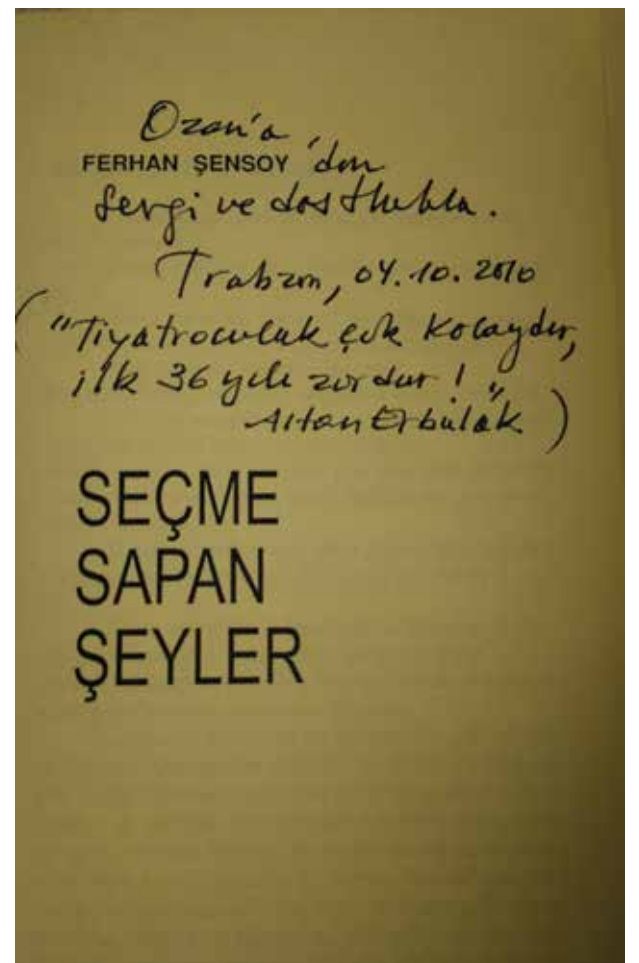 Ozan'a,
FERHAN ŞENSOY 'dan
sevgi ve dostlukla.
Trabzon, 04.10.2010
("Tiyatroculuk çok kolaydır,
ilk 36 yılı zordur!"
Altan Erbulak)
SEÇME
SAPAN
ŞEYLER